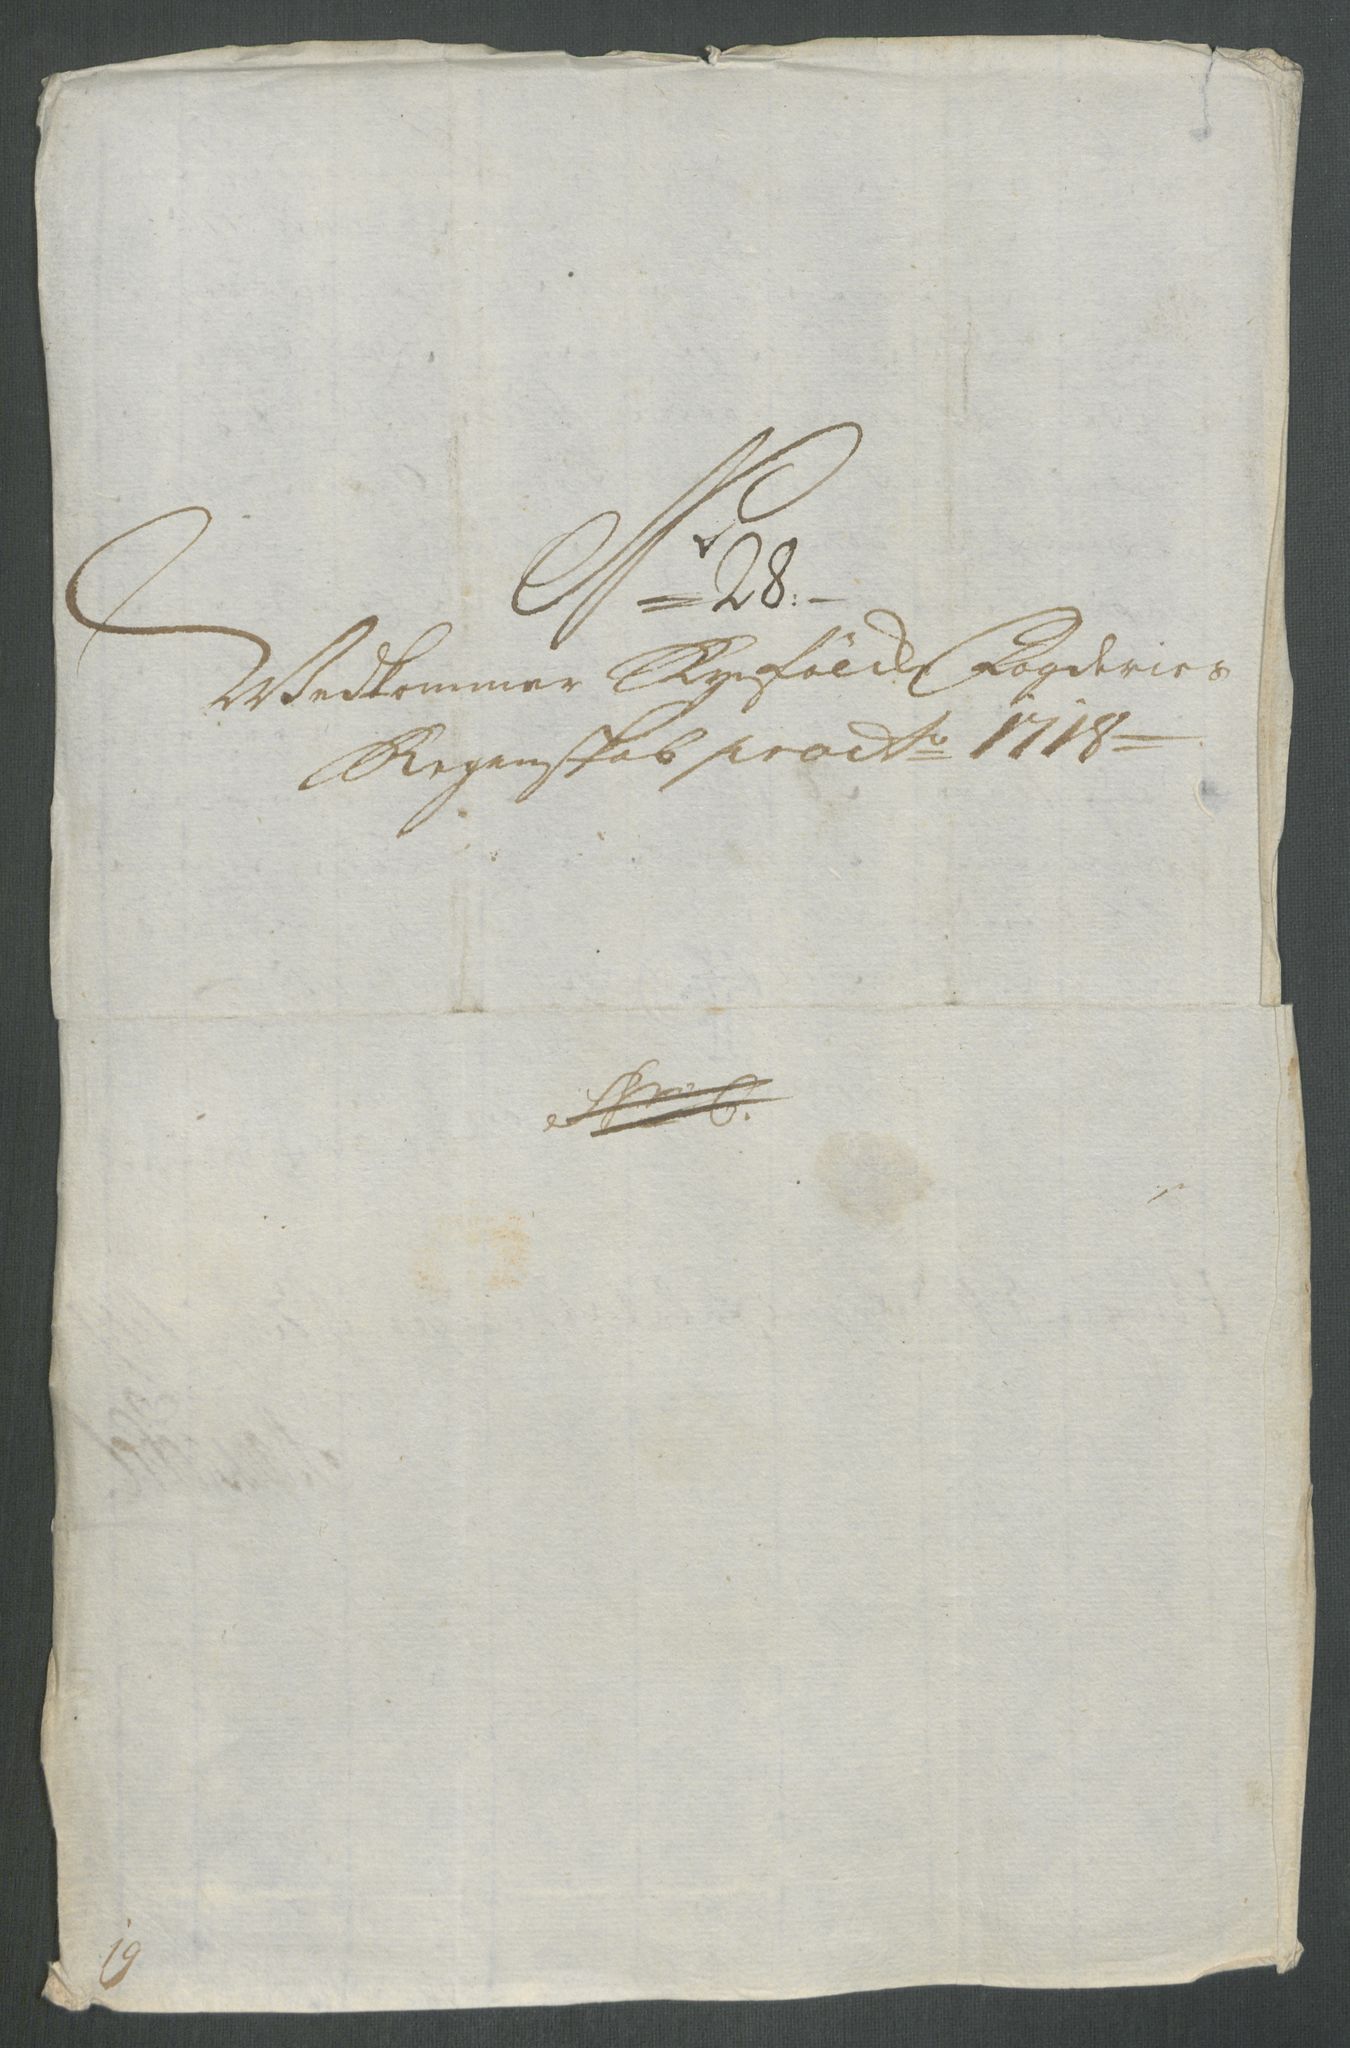 No 28:-
Vedkommer Ryefölche Fogderies
Regenskab pro Ao 1718
19